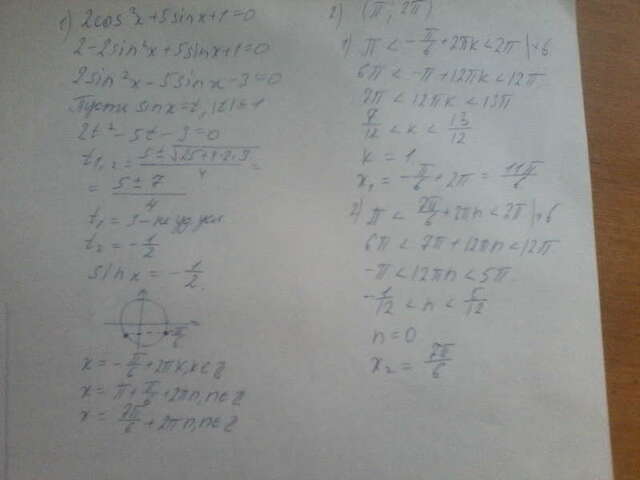 1) 2cos²x+5sinx+1=0
2-2sin²x+5sinx+1=0
2sin²x-5sinx-3=0
Пусть sinx=t, |t|≤1
2t²-5t-3=0
t1,2 = (5±√(25+4·2·3))/4 =
= (5±7)/4
t1=3-не уд. усл.
t2=-1/2
sinx=-1/2.
-π/6
x=-π/6+2πk, k∈Z
x=π+π/6+2πn, n∈Z
x=7π/6+2πn, n∈Z
2) (π; 2π)
1) π<-π/6+2πk<2π |·6
6π<-π+12πk<12π
7π<12πk<13π
7/12<k<13/12
k=1
x1=-π/6+2π=11π/6
2) π<7π/6+2πn<2π |·6
6π<7π+12πn<12π
-π<12πn<5π
-1/12<n<5/12
n=0
x2=7π/6